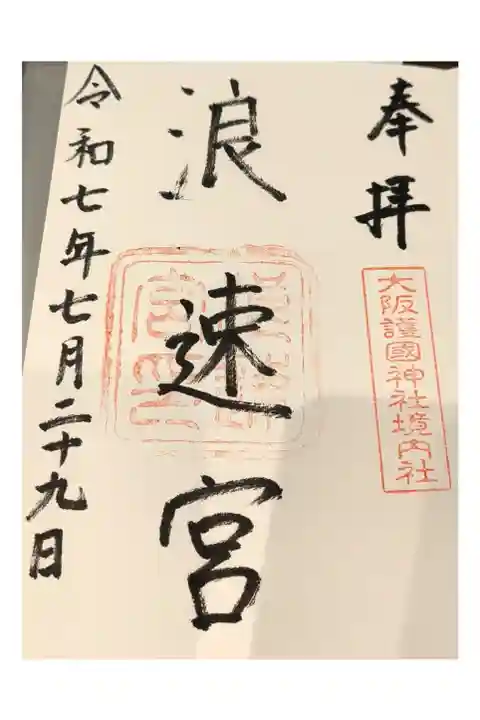 奉拝
大阪護國神社境内社
浪速宮
令和七年七月二十九日